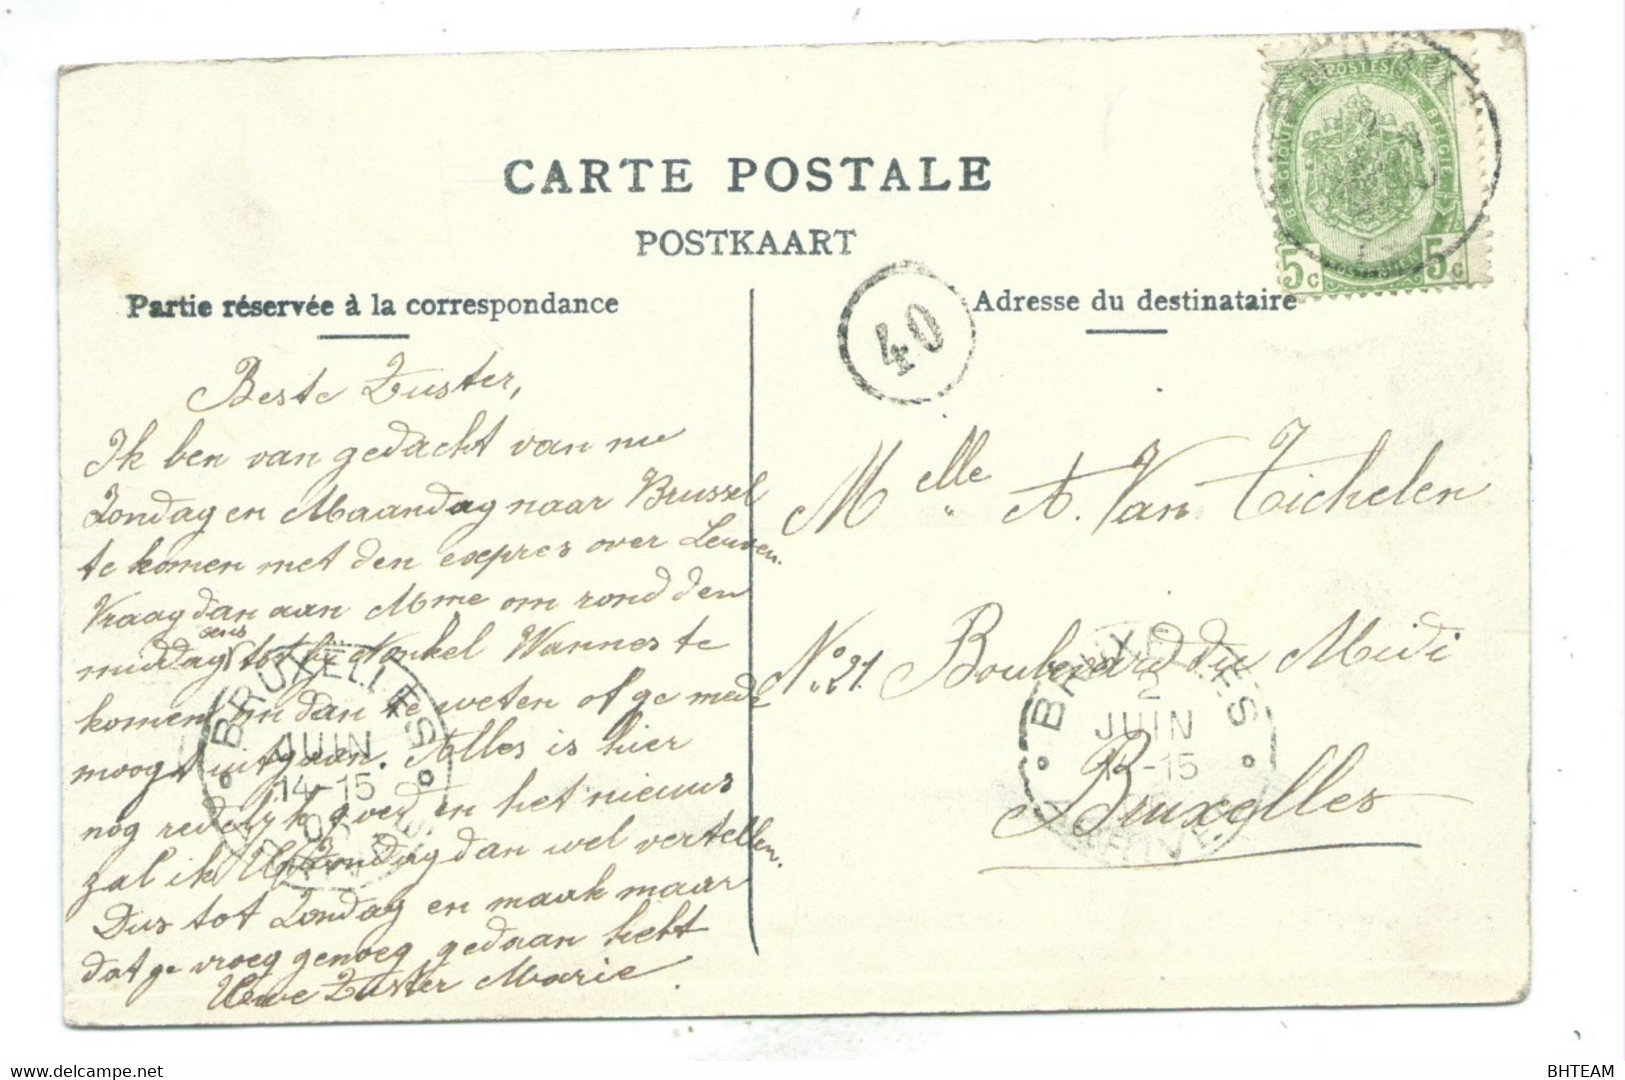 CARTE POSTALE
POSTKAART
Partie réservée à la correspondance
Adresse du destinataire
BELGIQUE POSTES BELGIE
5 c 5 c
40
Beste Zuster,
Ik ben van gedacht van nu
Zondag en Maandag naar Brussel
te komen met den expres over Leuven.
Vraag dan aan Mme om rond den
middag eens tot bij Nonkel Wannes te
komen om dan te weten of ge mede
moogt uitgaan. Alles is hier
nog redelijk goed en het nieuws
zal ik U Zondag dan wel vertellen.
Dus tot Zondag en maak maar
dat ge vroeg genoeg gedaan hebt
Uwe Zuster Marie.
Melle A. Van Tichelen
No. 21. Boulevard du Midi
Bruxelles
BRUXELLES
JUIN
14-15
BRUXELLES
2
JUIN
-15
BHTEAM